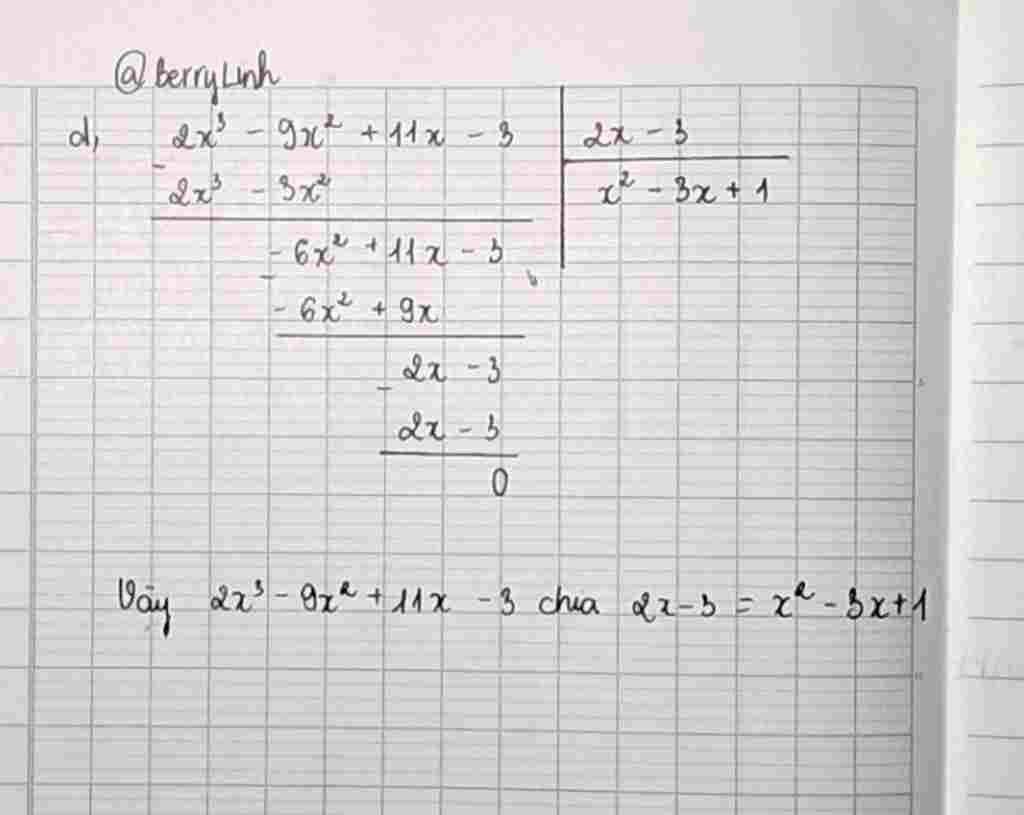 @BerryLinh
d, 2x³ - 9x² + 11x - 3 | 2x - 3
- 2x³ - 3x² | x² - 3x + 1
- 6x² + 11x - 3
-
- 6x² + 9x
2x - 3
-
2x - 3
0
Vậy 2x³ - 9x² + 11x - 3 chia 2x - 3 = x² - 3x + 1